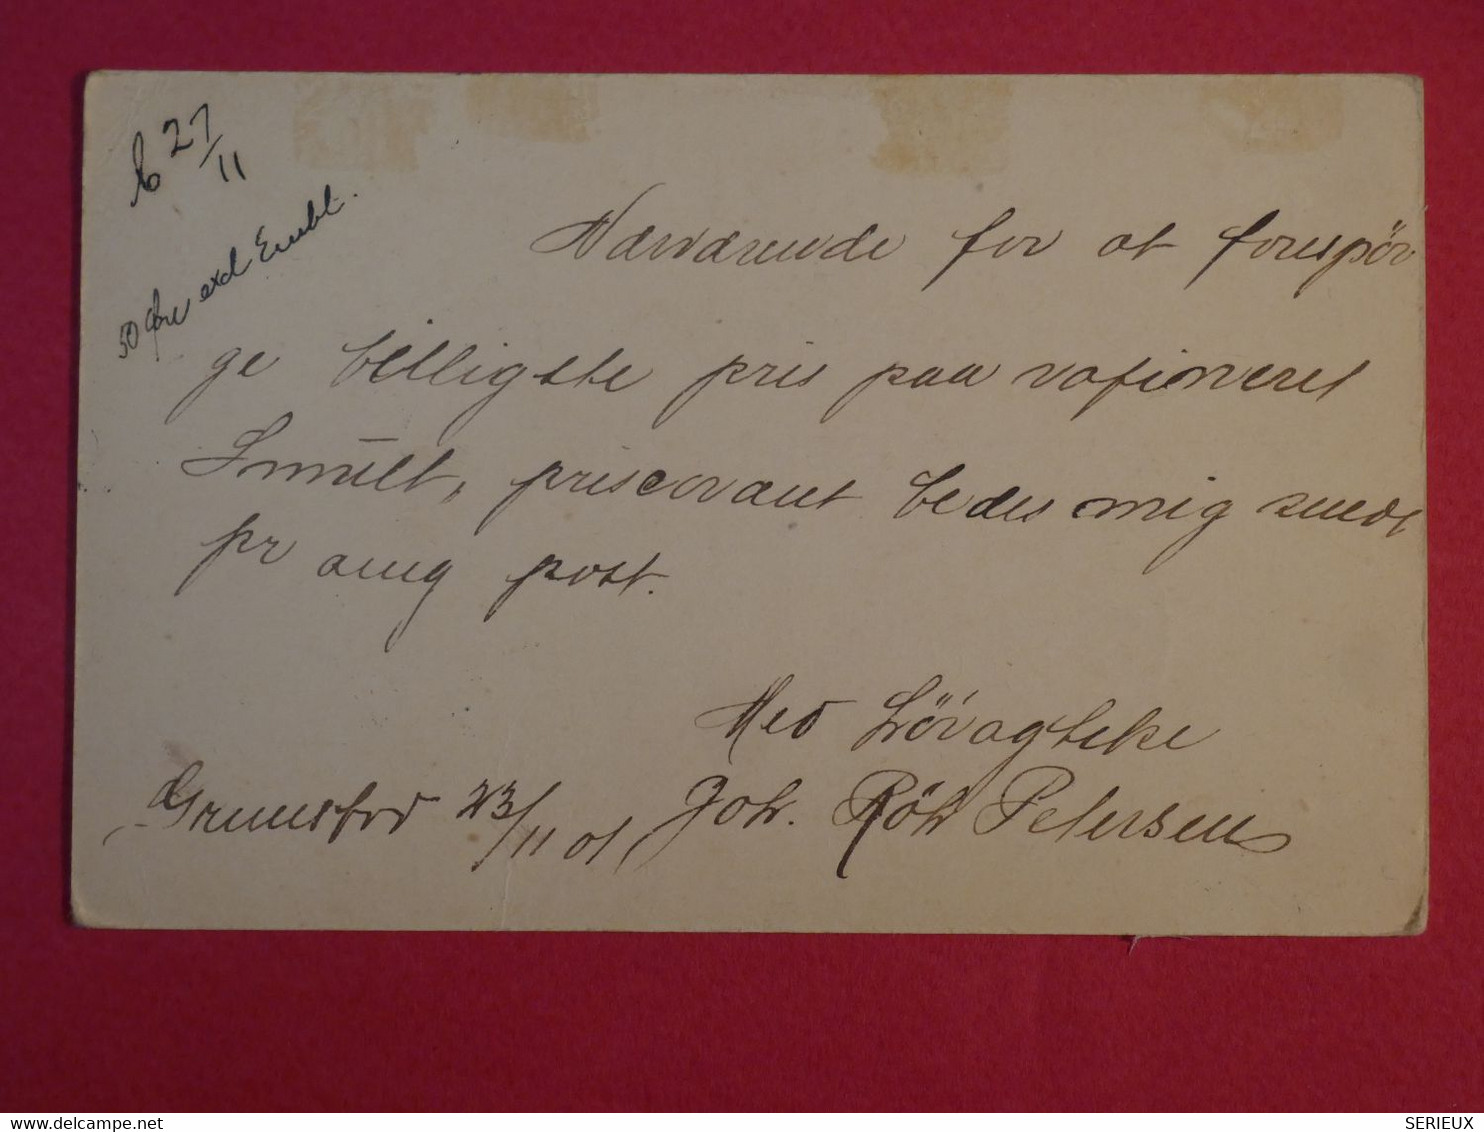 b 27/11
50 Øre excl Embl.
Nærværende for at forespör
ge billigste pris paa rafineret
Smult, priscorant bedes mig sendt
pr omg post.
Med Höiagtelse
Grimsbro 23/11 01, Joh. Röh Petersen
SERIEUX